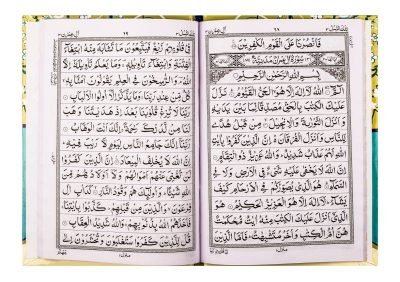 فَانْصُرْنَا عَلَى الْقَوْمِ الْكٰفِرِيْنَ
بِسْمِ اللّٰهِ الرَّحْمٰنِ الرَّحِيْمِ
الٓمَّٓ اللّٰهُ لَآ اِلٰهَ اِلَّا هُوَ الْحَيُّ الْقَيُّوْمُ نَزَّلَ
عَلَيْكَ الْكِتٰبَ بِالْحَقِّ مُصَدِّقًا لِّمَا بَيْنَ يَدَيْهِ
وَاَنْزَلَ التَّوْرٰىةَ وَالْاِنْجِيْلَ مِنْ قَبْلُ هُدًى
لِّلنَّاسِ وَاَنْزَلَ الْفُرْقَانَ اِنَّ الَّذِيْنَ كَفَرُوْا بِاٰيٰتِ
اللّٰهِ لَهُمْ عَذَابٌ شَدِيْدٌ وَاللّٰهُ عَزِيْزٌ ذُو انْتِقَامٍ
اِنَّ اللّٰهَ لَا يَخْفٰى عَلَيْهِ شَيْءٌ فِي الْاَرْضِ وَلَا فِي
السَّمَآءِ هُوَ الَّذِيْ يُصَوِّرُكُمْ فِي الْاَرْحَامِ كَيْفَ
يَشَآءُ لَآ اِلٰهَ اِلَّا هُوَ الْعَزِيْزُ الْحَكِيْمُ هُوَ
الَّذِيْٓ اَنْزَلَ عَلَيْكَ الْكِتٰبَ مِنْهُ اٰيٰتٌ مُّحْكَمٰتٌ
هُنَّ اُمُّ الْكِتٰبِ وَاُخَرُ مُتَشٰبِهٰتٌ فَاَمَّا الَّذِيْنَ
فِيْ قُلُوْبِهِمْ زَيْغٌ فَيَتَّبِعُوْنَ مَا تَشَابَهَ مِنْهُ ابْتِغَآءَ
الْفِتْنَةِ وَابْتِغَآءَ تَاْوِيْلِهٖ وَمَا يَعْلَمُ تَاْوِيْلَهٗٓ اِلَّا
اللّٰهُ وَالرّٰسِخُوْنَ فِي الْعِلْمِ يَقُوْلُوْنَ اٰمَنَّا بِهٖ
كُلٌّ مِّنْ عِنْدِ رَبِّنَا وَمَا يَذَّكَّرُ اِلَّآ اُولُوا الْاَلْبَابِ
رَبَّنَا لَا تُزِغْ قُلُوْبَنَا بَعْدَ اِذْ هَدَيْتَنَا وَهَبْ
لَنَا مِنْ لَّدُنْكَ رَحْمَةً اِنَّكَ اَنْتَ الْوَهَّابُ
رَبَّنَآ اِنَّكَ جَامِعُ النَّاسِ لِيَوْمٍ لَّا رَيْبَ فِيْهِ
اِنَّ اللّٰهَ لَا يُخْلِفُ الْمِيْعَادَ اِنَّ الَّذِيْنَ كَفَرُوْا
لَنْ تُغْنِيَ عَنْهُمْ اَمْوَالُهُمْ وَلَآ اَوْلَادُهُمْ مِّنَ
اللّٰهِ شَيْئًا وَاُولٰٓئِكَ هُمْ وَقُوْدُ النَّارِ كَدَاْبِ اٰلِ
فِرْعَوْنَ وَالَّذِيْنَ مِنْ قَبْلِهِمْ كَذَّبُوْا بِاٰيٰتِنَا
فَاَخَذَهُمُ اللّٰهُ بِذُنُوْبِهِمْ وَاللّٰهُ شَدِيْدُ الْعِقَابِ
قُلْ لِّلَّذِيْنَ كَفَرُوْا سَتُغْلَبُوْنَ وَتُحْشَرُوْنَ اِلٰى